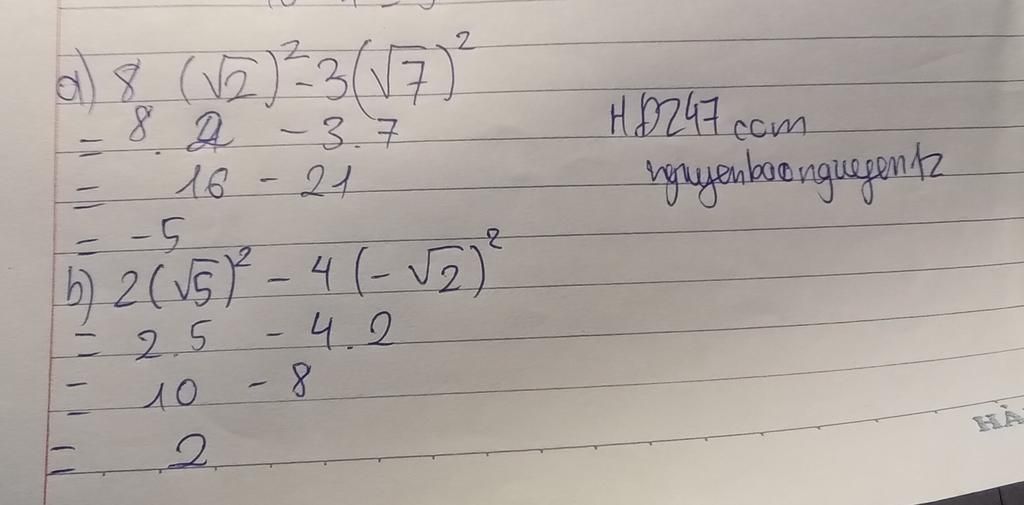 a) 8 (√2)² - 3(√7)²
= 8 . 2 - 3 . 7
= 16 - 21
= -5
b) 2(√5)² - 4(-√2)²
= 2.5 - 4.2
= 10 - 8
= 2
HĐ247 com
nguyenbaonguyentz
HÀ